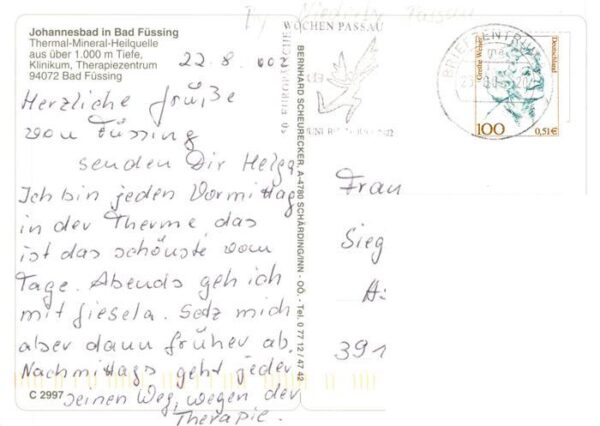 Johannesbad in Bad Füssing
Thermal-Mineral-Heilquelle
aus über 1.000 m Tiefe,
Klinikum, Therapiezentrum
94072 Bad Füssing
22.8.002
Herzliche Grüße
von Füssing
senden Dir Helga
Ich bin jeden Vormittag
in der Therme das
ist das schönste vom
Tage. Abends geh ich
mit Giesela. Setz mich
aber dann früher ab.
Nachmittags geht jeder
seinen Weg, wegen der
Therapie.
C 2997
BERNHARD SCHEURECKER, A-4780 SCHÄRDING/INN - OÖ. - Tel. 0 77 12 / 47 42
WOCHEN PASSAU
BRIEFZENTRUM
Deutschland
100
0,51€
Frau
Sieg
391